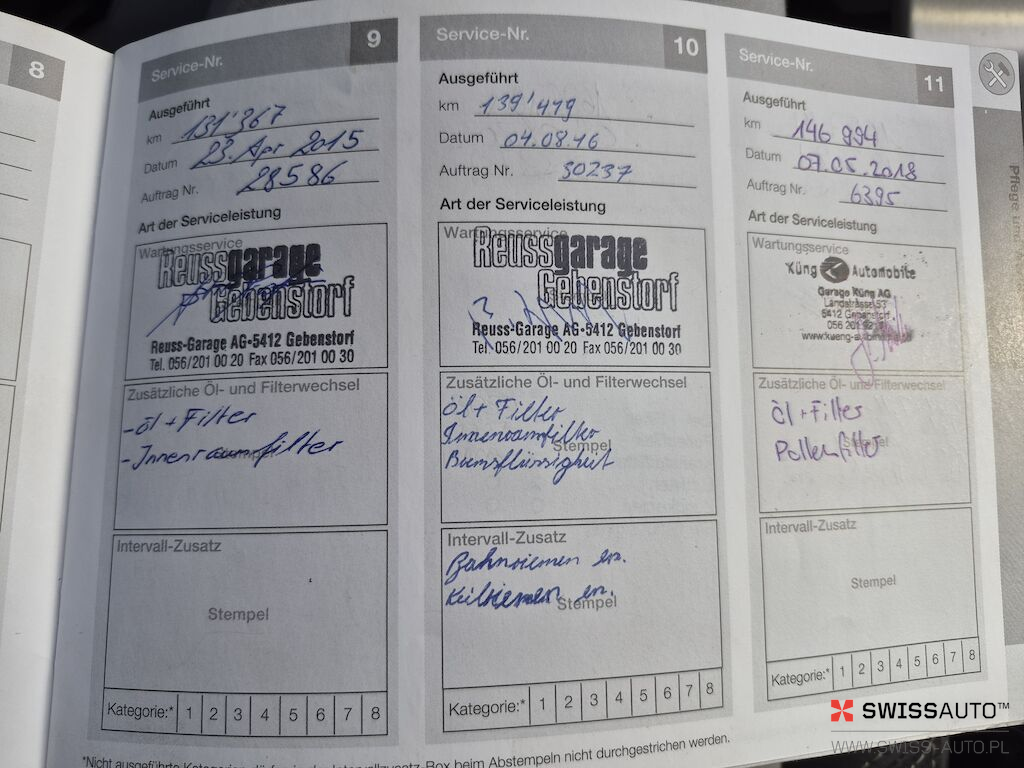 8
Service-Nr. 9
Ausgeführt
km 131'367
Datum 23. Apr 2015
Auftrag Nr. 28586
Art der Serviceleistung
Wartungsservice
Reussgarage
Gebenstorf
Reuss-Garage AG·5412 Gebenstorf
Tel. 056/201 00 20 Fax 056/201 00 30
Zusätzliche Öl- und Filterwechsel
- Öl + Filter
- Innenraumfilter
Stempel
Intervall-Zusatz
Stempel
Kategorie:* 1 2 3 4 5 6 7 8
Service-Nr. 10
Ausgeführt
km 139'479
Datum 04.08.16
Auftrag Nr. 30237
Art der Serviceleistung
Wartungsservice
Reussgarage
Gebenstorf
Reuss-Garage AG·5412 Gebenstorf
Tel. 056/201 00 20 Fax 056/201 00 30
Zusätzliche Öl- und Filterwechsel
Öl + Filter
Innenraumfilter
Stempel
Bremsflüssigkeit
Intervall-Zusatz
Zahnriemen en.
Keilriemen en.
Stempel
Kategorie:* 1 2 3 4 5 6 7 8
Service-Nr. 11
Ausgeführt
km 146 994
Datum 07.05.2018
Auftrag Nr. 6395
Art der Serviceleistung
Wartungsservice
Küng Automobile
Garage Küng AG
Landstrasse 53
5412 Gebenstorf
056 201
Zusätzliche Öl- und Filterwechsel
Öl + Filter
Pollenfilter
Stempel
Intervall-Zusatz
Stempel
Kategorie:* 1 2 3 4 5 6 7 8
Pflege und
*Nicht ausgeführte beim Abstempeln nicht durchgestrichen werden.
SWISSAUTO™
WWW.SWISS-AUTO.PL